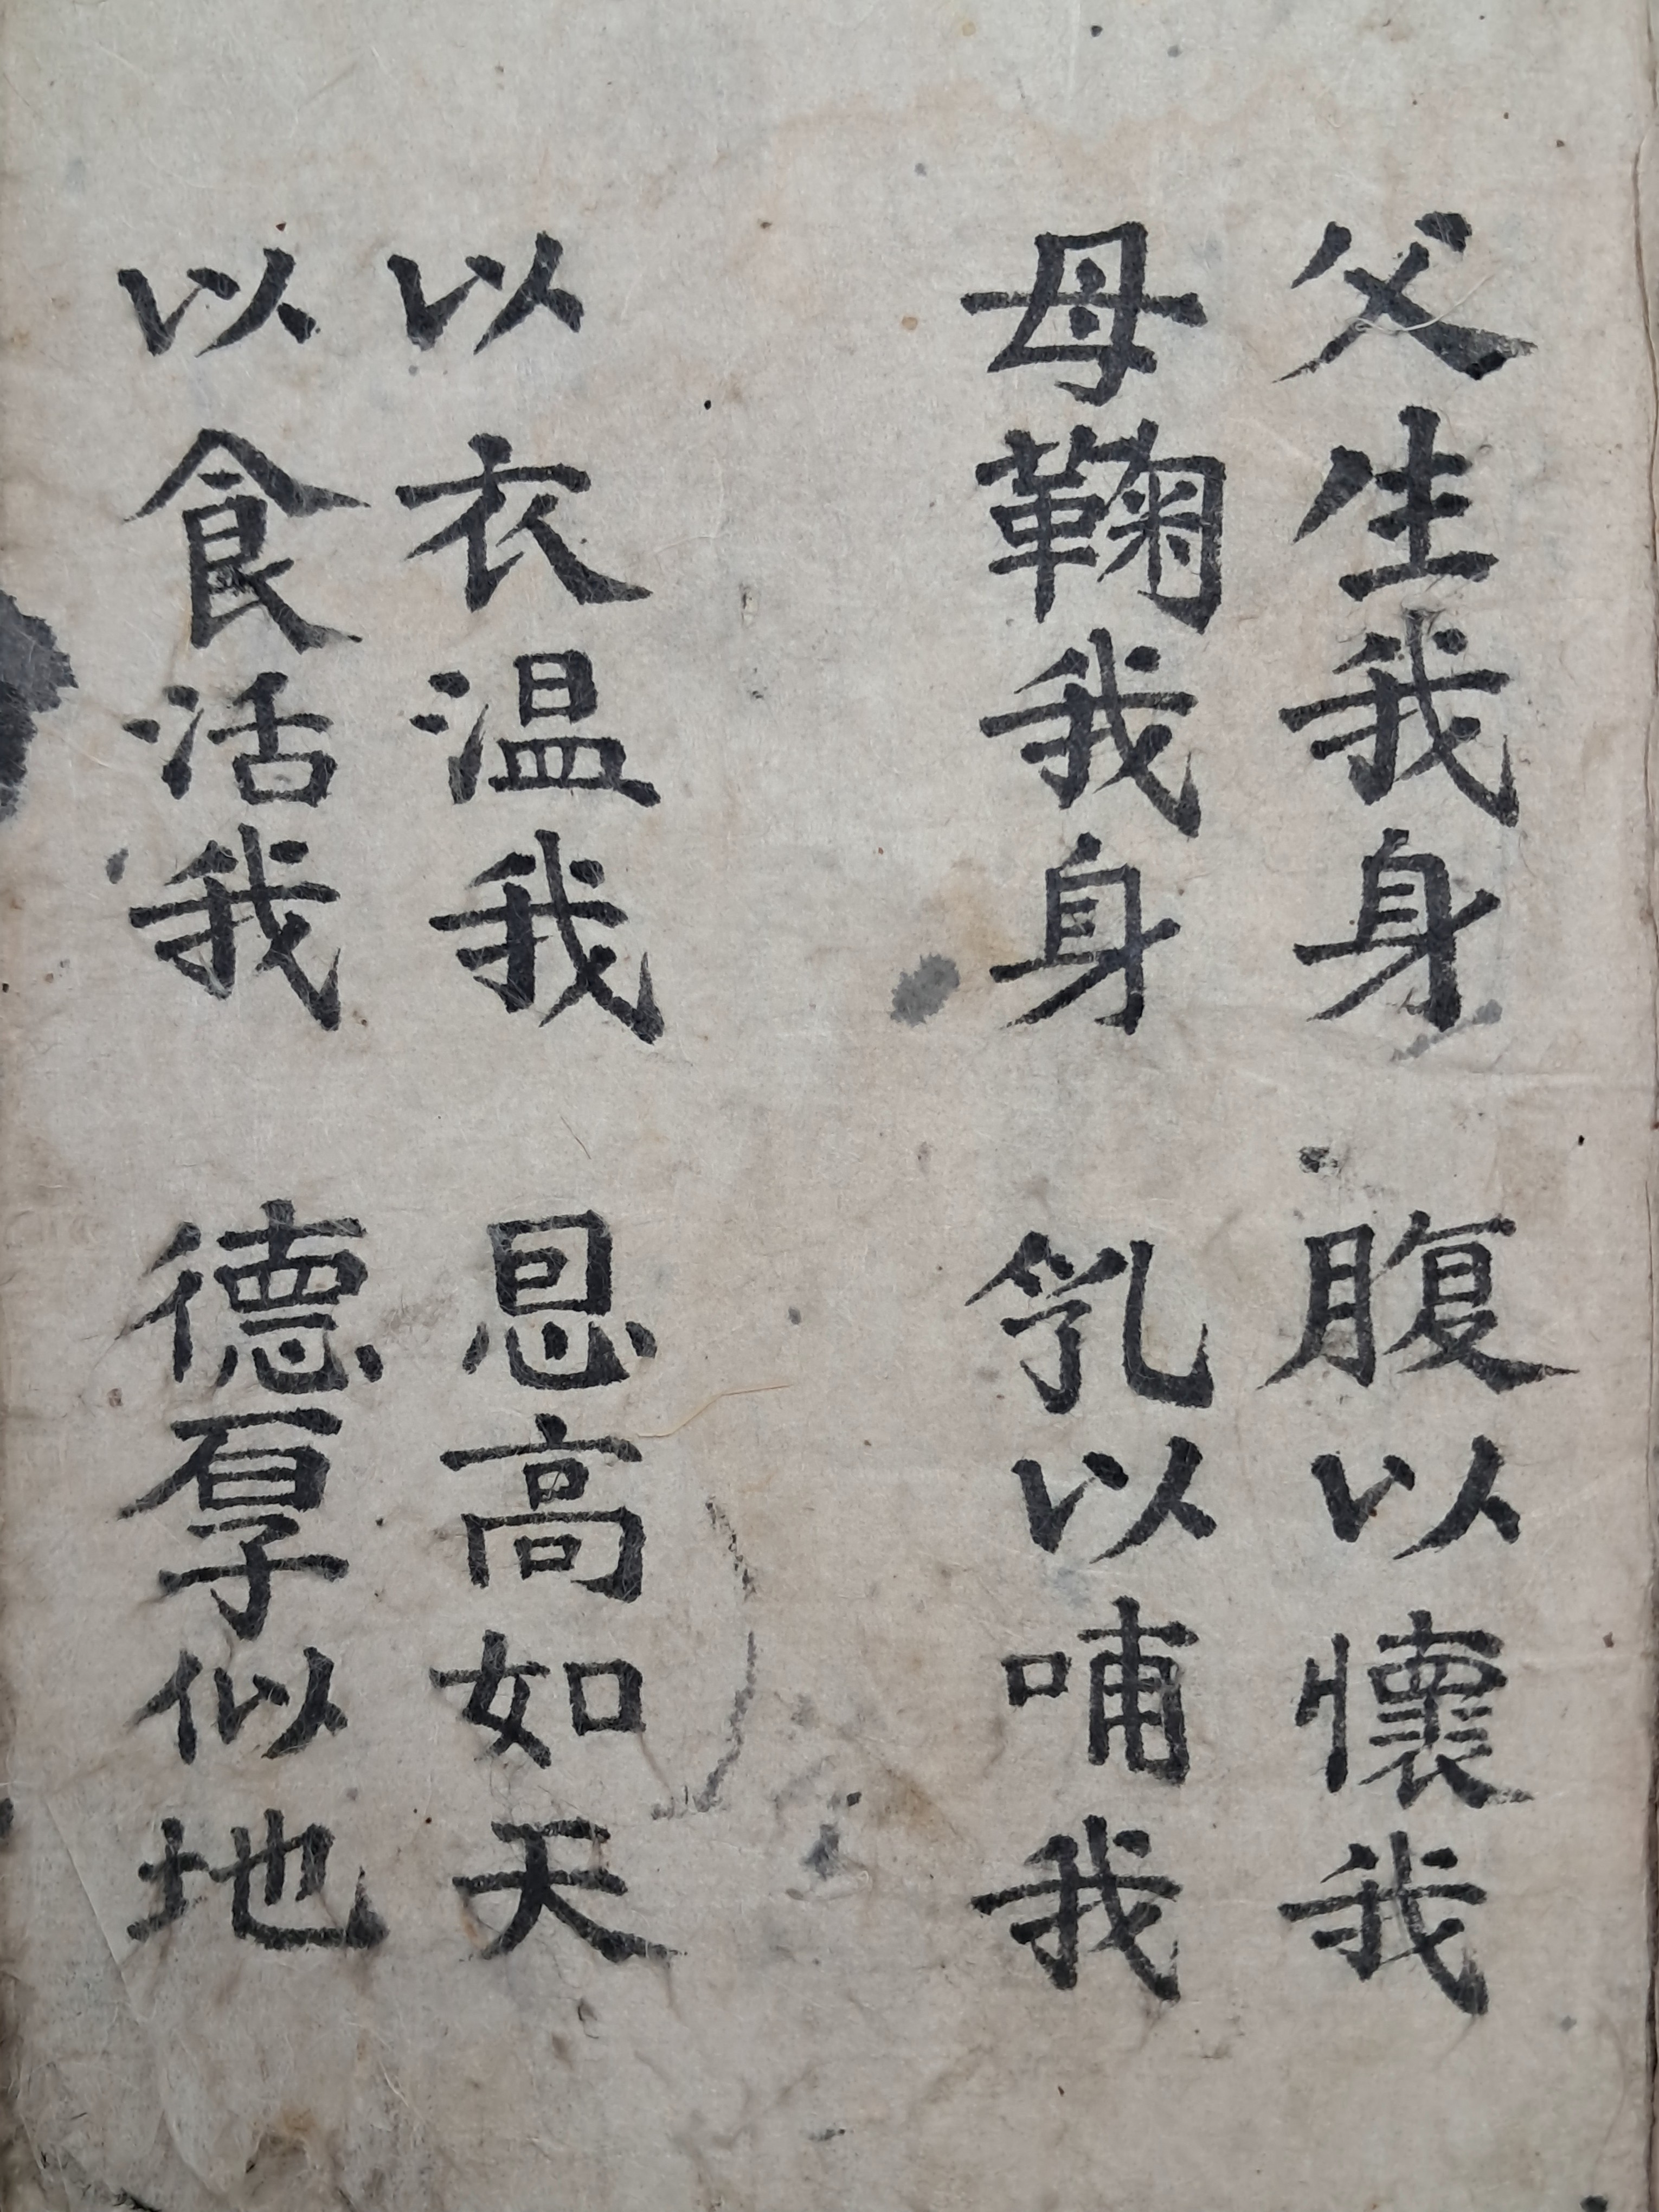 父生我身 腹以懷我
母鞠我身 乳以哺我
以衣温我 恩高如天
以食活我 德厚似地